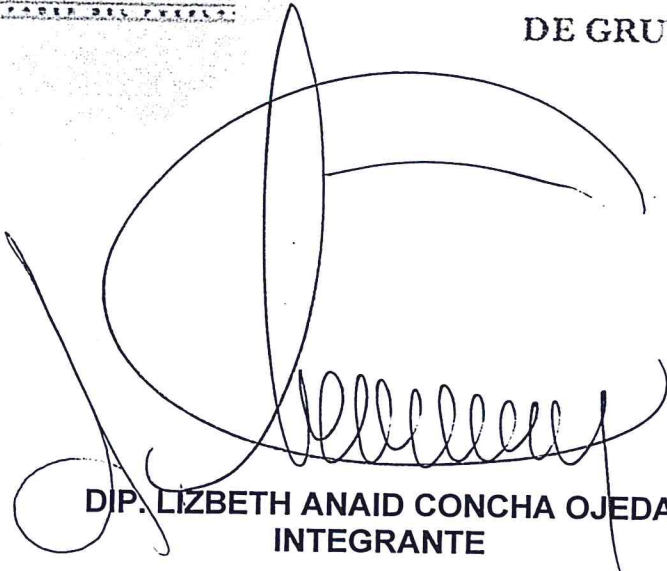 PODER DEL PUEBLO
DE GRU
DIP. LIZBETH ANAID CONCHA OJEDA
INTEGRANTE